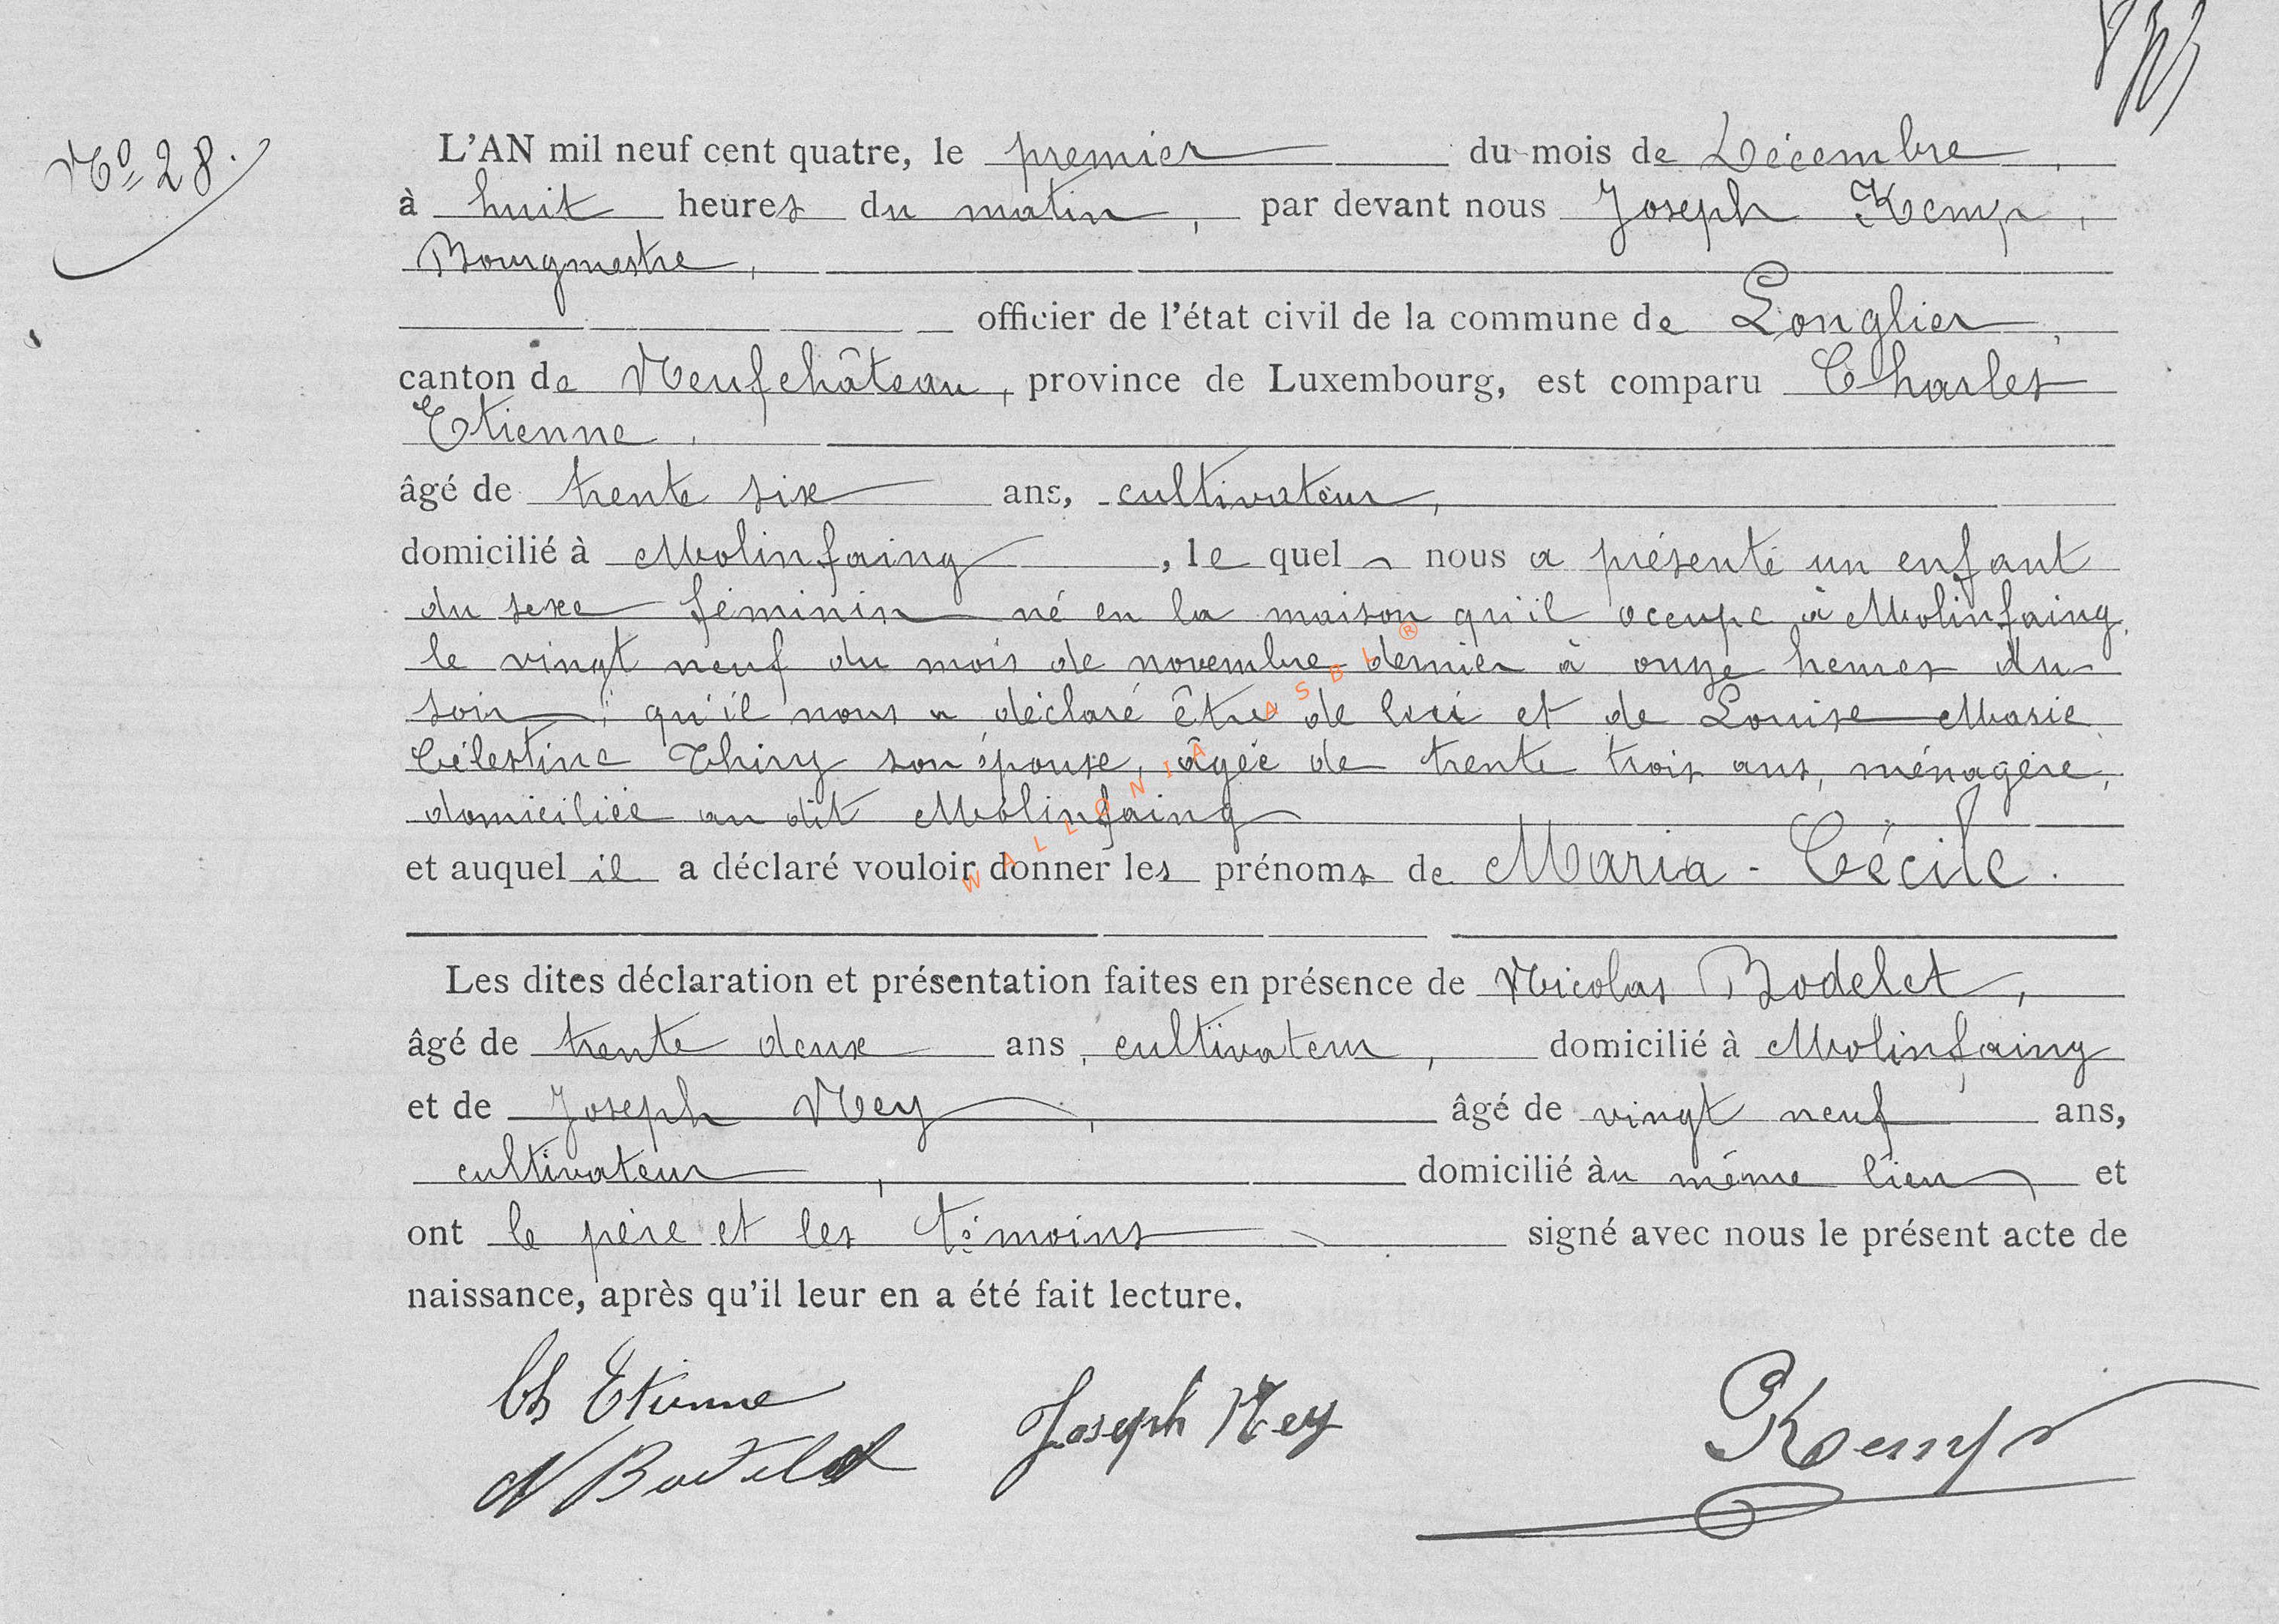 Nº 28.
L'AN mil neuf cent quatre, le premier du mois de Décembre,
à huit heures du matin, par devant nous Joseph Kemp,
Bourgmestre,
officier de l'état civil de la commune de Longlier,
canton de Neufchâteau, province de Luxembourg, est comparu Charles
Etienne,
âgé de trente six ans, cultivateur,
domicilié à Molinfaing, le quel nous a présenté un enfant
du sexe féminin né en la maison qu'il occupe à Molinfaing,
le vingt neuf du mois de novembre dernier à onze heures du
soir, qu'il nous a déclaré être de lui et de Louise Marie
Célestine Thiry son épouse, âgée de trente trois ans, ménagère,
domiciliée au dit Molinfaing
et auquel il a déclaré vouloir donner les prénoms de Maria - Cécile.
Les dites déclaration et présentation faites en présence de Nicolas Bodelet,
âgé de trente deux ans, cultivateur, domicilié à Molinfaing
et de Joseph Ney, âgé de vingt neuf ans,
cultivateur, domicilié àu même lieu et
ont le père et les témoins signé avec nous le présent acte de
naissance, après qu'il leur en a été fait lecture.
Ch Etienne
Joseph Ney
Kemp
N Bodelet
WALLONIA ASBL ®